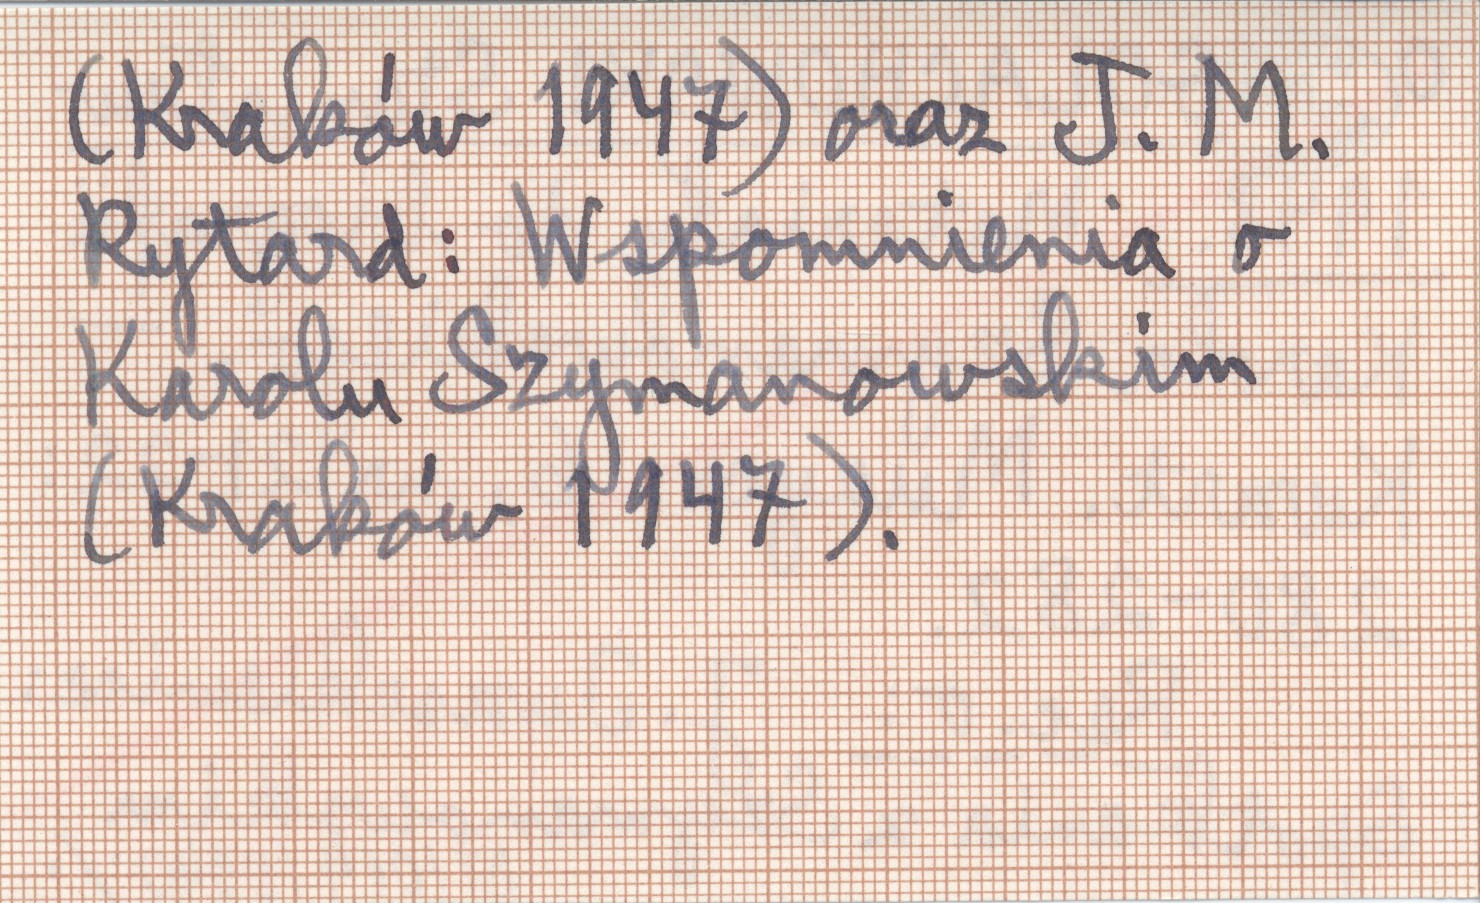 (Kraków 1947) oraz J. M.
Rytard: Wspomnienia o
Karolu Szymanowskim
(Kraków 1947).